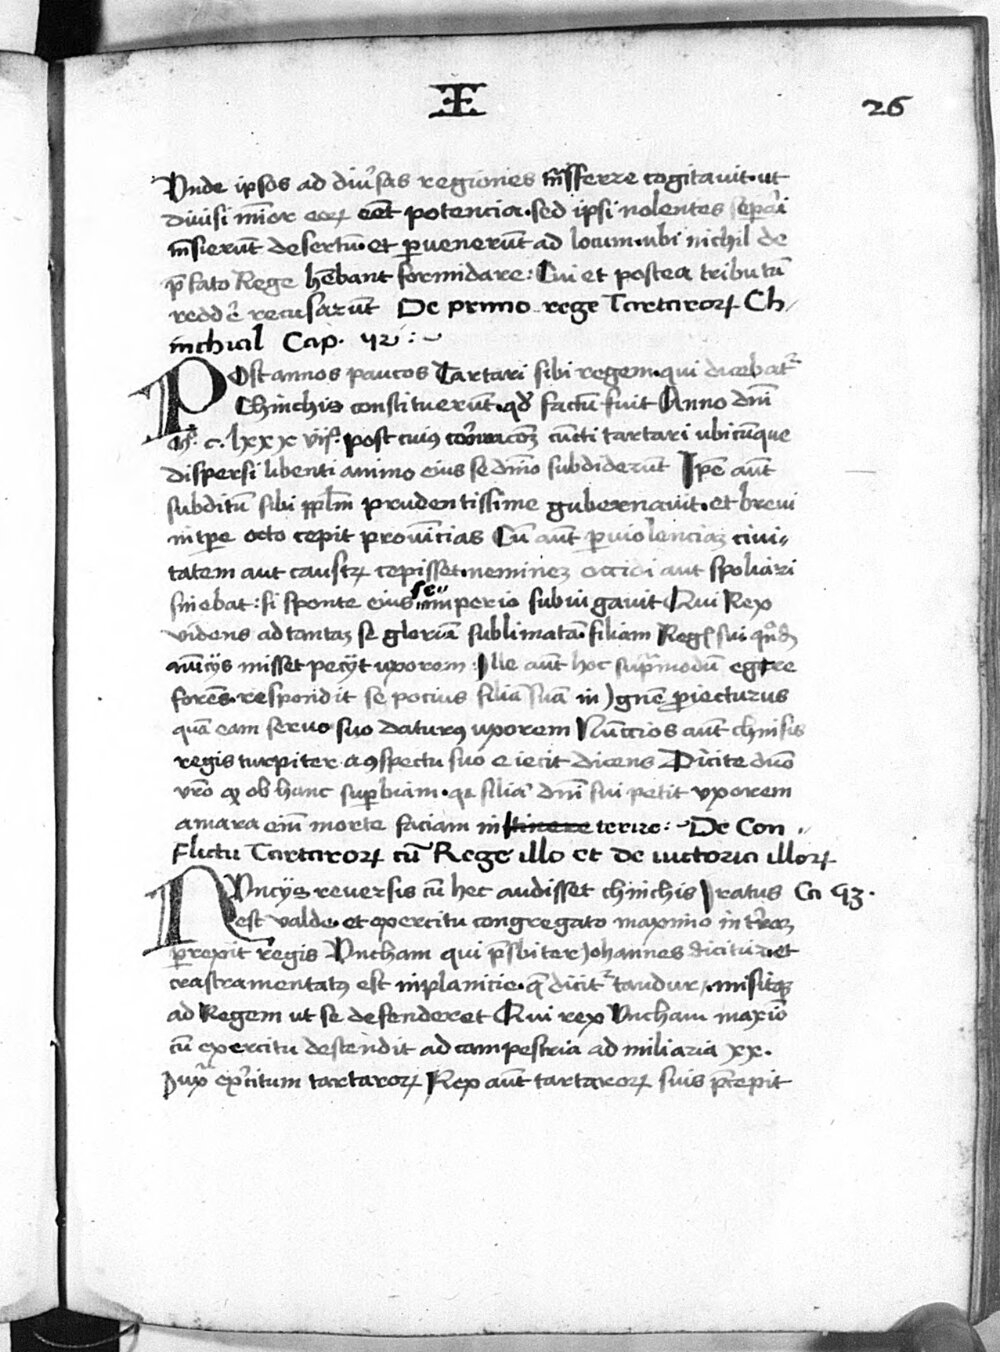 Æ
26
Vnde ipsos ad diu'sas regiones trāsferre cogitauit. ut
diuisi mīor eoꝝ eēt potencia. sed ipsi nolentes sepa'i
trāsierūt desertū. et ꝑuenerūt ad locum. ubi nichil de
p̄fato Rege hēbant formidare: Cui et postea tributū
redd'e recusarūt De primo rege Tartaroꝝ Ch
inchial Cap. 42:
Post annos paucos Tartari sibi regem. qui dicebat'
Chinchis constituerūt. qd' factū fuit Anno dn̄i
Mº. c. lxxx vijº. post cuiꝯ coronacōꝫ cūcti tartari ubicūque
dispersi libenti animo eius se dn̄io subdiderūt Ipe aūt
subditū sibi ppl̄m prudentissime gubernauit. et breui
in tꝑe octo cepit prouīcias Cū aūt ꝑ violenciaꝫ ciui
tatem aut castꝝ cepisset. nemineꝫ occidi aut spoliari
sinebat: si sponte eius se imperio subiugauit Qui Rex
videns ad tantaꝫ se gloriā sublimatū. filiam Reg sui qn̄dā
nūcijs misset pecijt uxorem: Ille aūt hoc supra modū egre
ferens. respondit se pocius filiā suā in Ignē proiecturus
quā eam seruo suo daturꝯ uxorem Nūccios aūt chinsis
regis turpiter a ꝯspectu suo eiecit dicens Dicite dn̄o
vr̄o ꝙ ob hanc suꝑbiam. qꝛ filiā dn̄i sui petit vxorem
amara eum morte faciam in itinere terire: De Con
flictu Tartaroꝝ cū Rege illo et de uictoria illoꝝ
Nuncijs reuersis cū hec audisset chinchis Iratus Ca 43.
est valde. et exercitu congregato maximo in trāꝫ
ꝑrexit regis Vncham qui p̄sbiter Johannes dicitur. et
crastramentatꝯ est in planicie. q̄ dicit' tandur. misitqꝫ
ad Regem ut se defenderet Qui rex Vncham maxiō
cū exercitu descendit ad campestria ad miliaria xx.
Iuxᵃ ex'citum tartaroꝝ Rex aūt tartaroꝝ suis p̄cepit